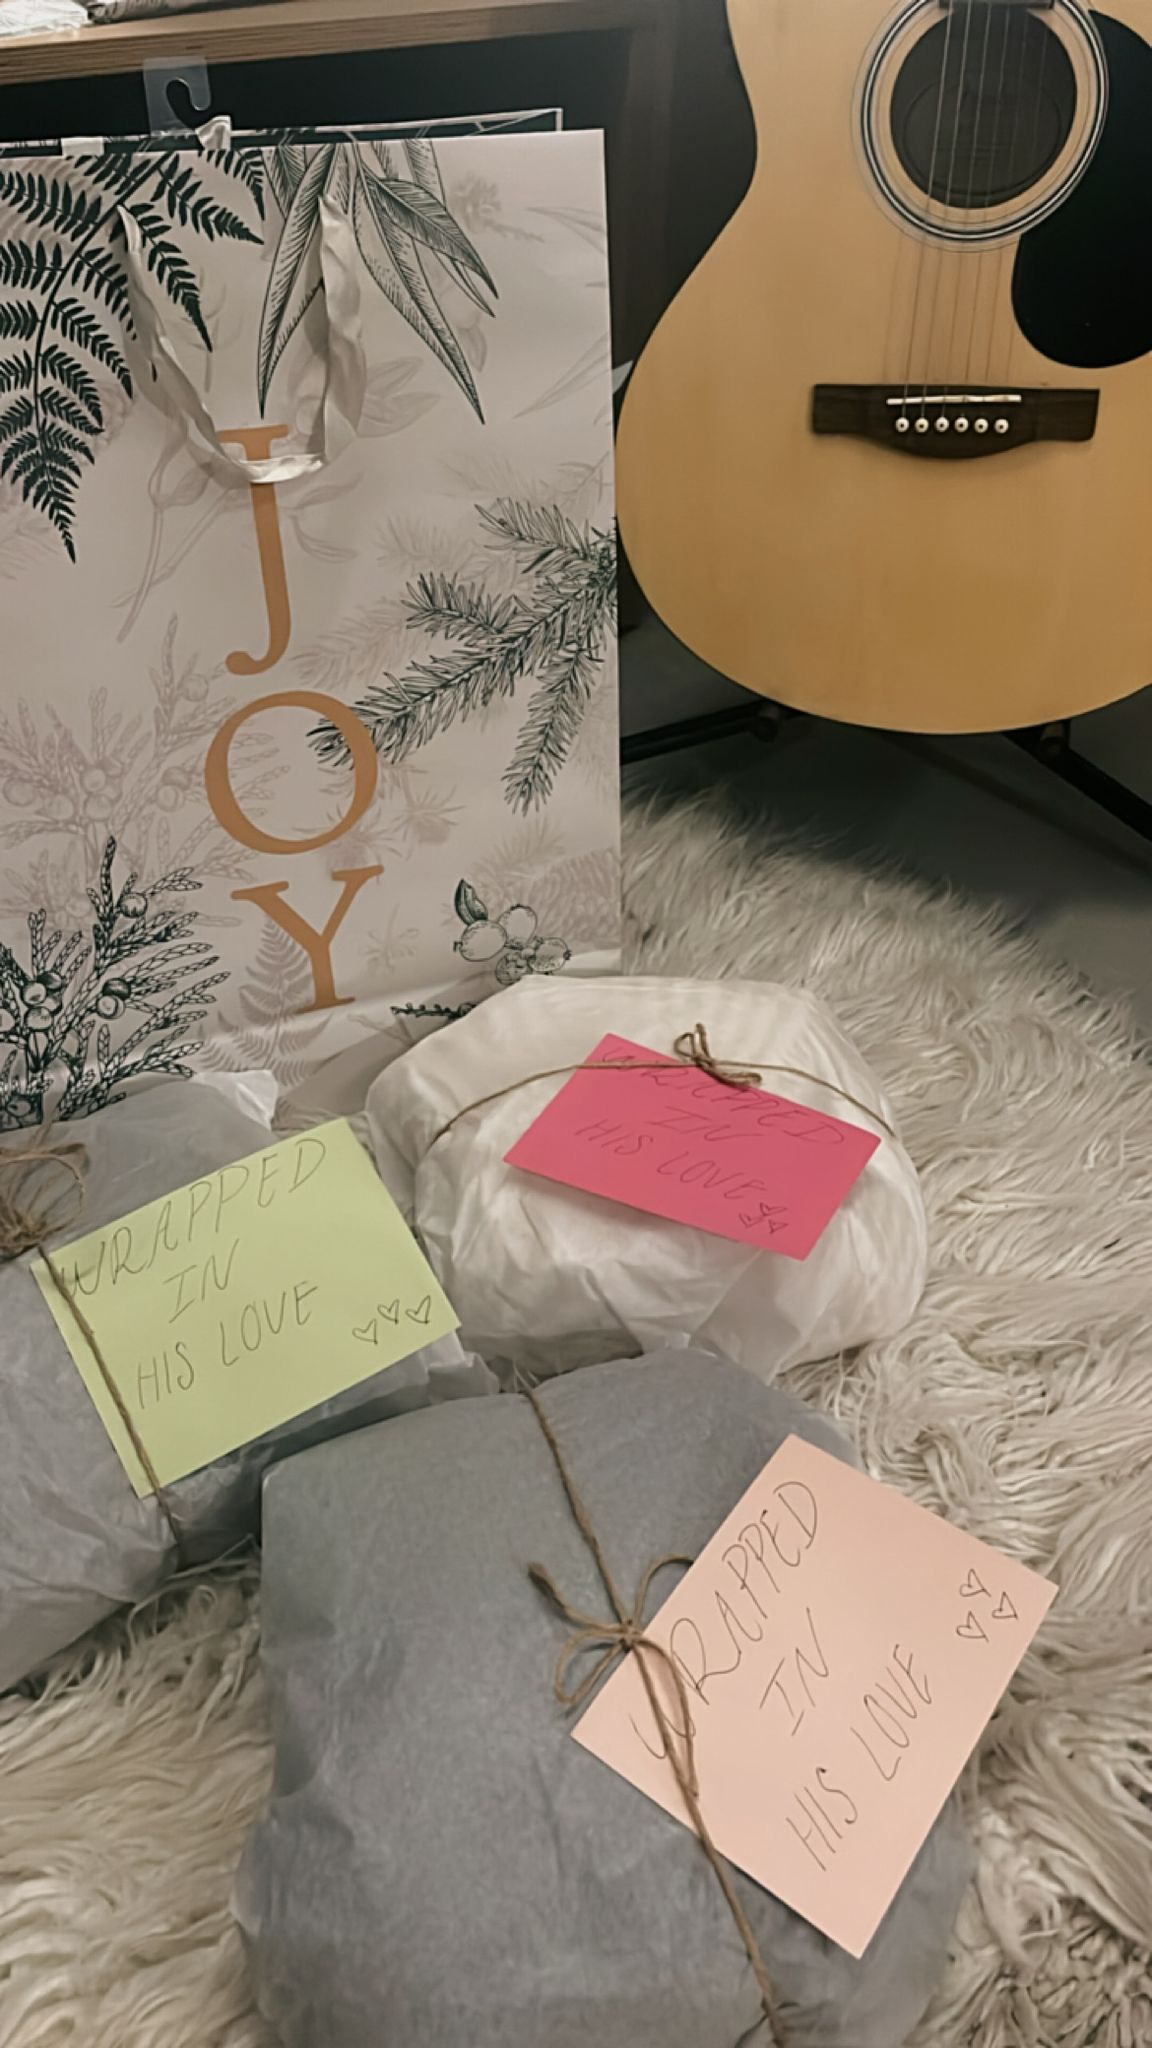 JOY
WRAPPED
IN
HIS LOVE
WRAPPED
IN
HIS LOVE
WRAPPED
IN
HIS LOVE